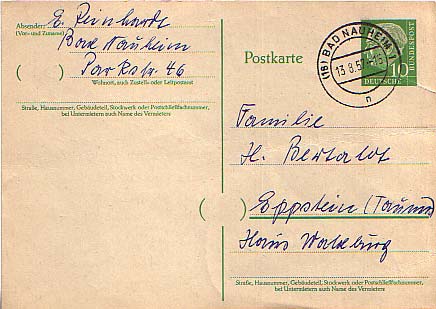 Absender: E. Reinhardt
(Vor- und Zuname)
Bad Nauheim
Parkstr. 46
( )
Wohnort, auch Zustell- oder Leitpostamt
Straße, Hausnummer, Gebäudeteil, Stockwerk oder Postschließfachnummer,
bei Untermietern auch Name des Vermieters
Postkarte
(16) BAD NAUHEIM
13.8.5
n
10
DEUTSCHE
BUNDESPOST
Familie
H. Bertaldt
( )
Eppstein (Taunus)
Haus Waldburg
Straße, Hausnummer, Gebäudeteil, Stockwerk oder Postschließfachnummer,
bei Untermietern auch Name des Vermieters